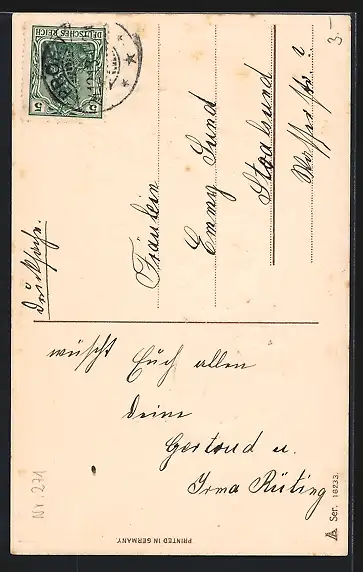 DEUTSCHES REICH
5 5
3.-
Drucksache.
Fräulein
Emmy Gund
Stralsund
wünscht Euch allen
Deine
Gertrud u.
Irma Rüting
NY. 271
PRINTED IN GERMANY
Ser. 16233.